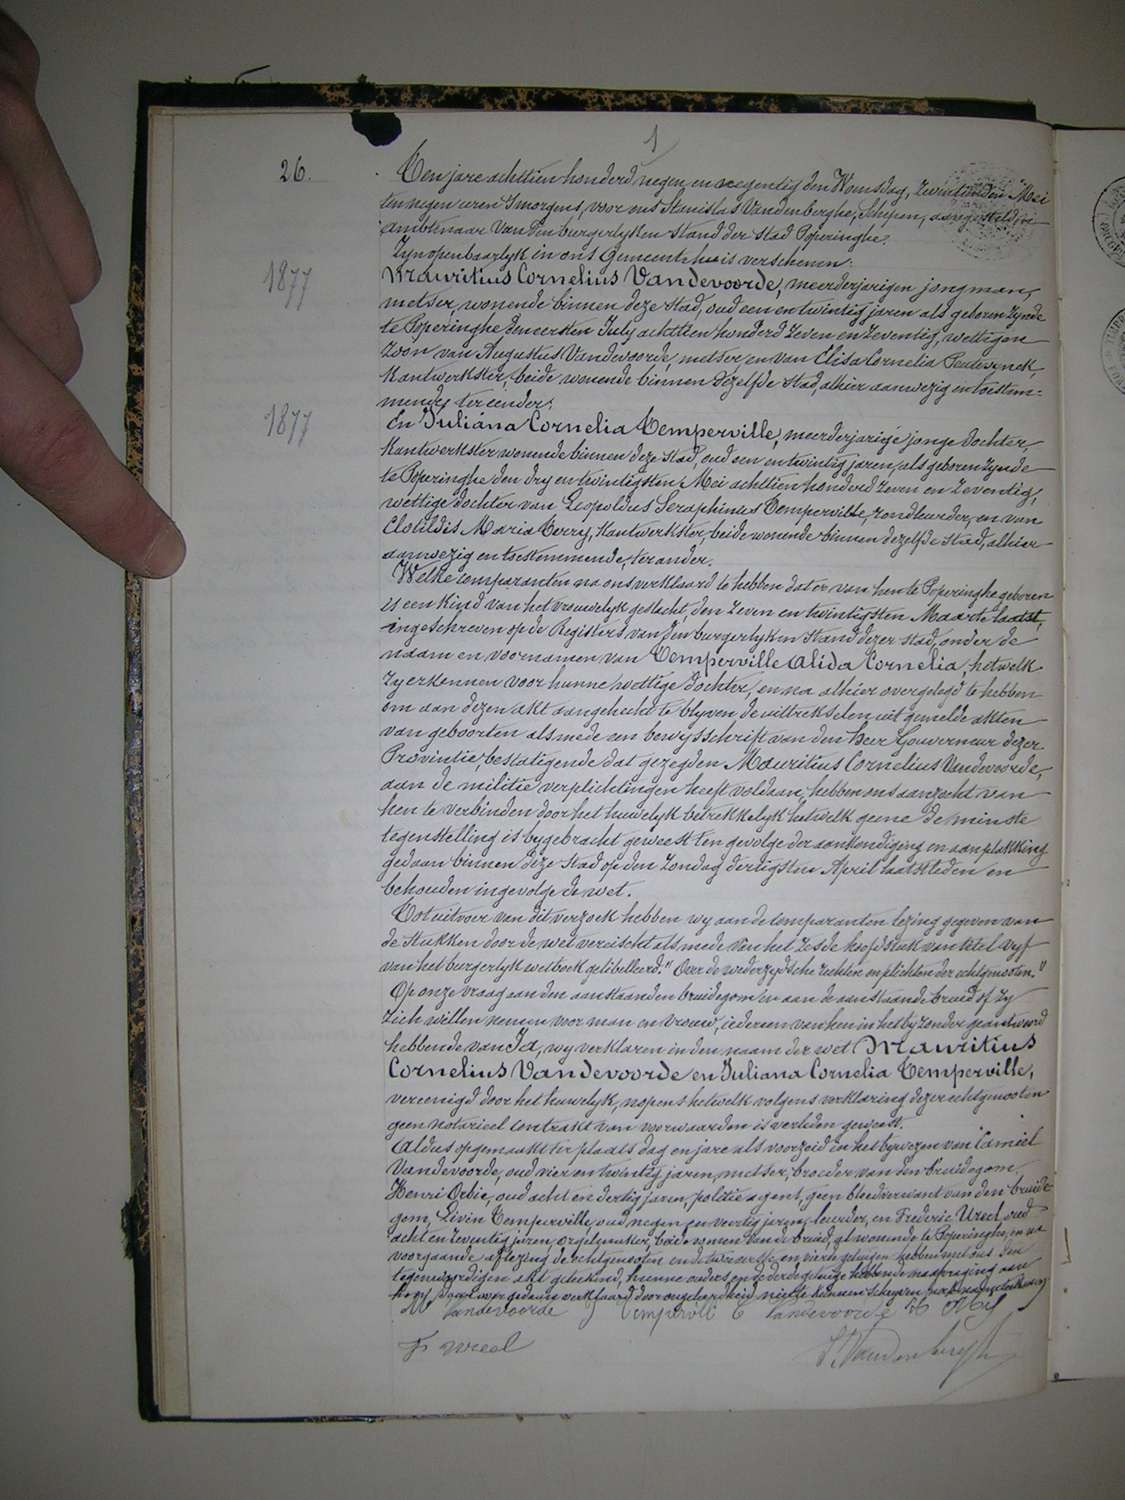 1
26.
Ten jare achttien honderd negen en negentig den Woensdag, Mei
ten negen uren Smorgens, voor ons Stanislas Vandenberghe, Schepen, aangesteld,
ambtenaar van den burgerlyken stand der stad Poperinghe.
Zyn openbaarlyk in ons Gemeentehuis verschenen:
1877
Mauritius Cornelius Vandevoorde, meerderjarigen jongman,
metser, wonende binnen deze stad, oud een en twintig jaren als geboren zynde
te Poperinghe den eersten July achttien honderd zeven en zeventig, wettigen
zoon van Augustus Vandevoorde, metser, en van Elisa Cornelia
Kantwerkster, beide wonende binnen dezelfde stad, alhier aanwezig en toestem-
mende, ter eender;
1877
En Juliana Cornelia Temperville, meerderjarige jonge dochter,
Kantwerkster wonende binnen deze stad, oud een en twintig jaren, als geboren zynde
te Poperinghe den dry en twintigsten Mei achttien honderd zeven en zeventig,
wettige dochter van Leopoldus Seraphinus Temperville, en van
Clotildis Maria Terry, Kantwerkster, beide wonende binnen dezelfde stad, alhier
aanwezig en toestemmende, ter ander.
Welke comparanten na ons verklaard te hebben dat er van hen te Poperinghe geboren
is een kind van het vrouwelyk geslacht, den zeven en twintigsten Maarte laatst,
ingeschreven op de Registers van den burgerlyken stand dezer stad, onder de
naam en voornamen van Temperville Alida Cornelia, hetwelk
zy erkennen voor hunne wettige dochter, en na alhier overgelegd te hebben
om aan dezen akt aangehecht te blyven de uittrekselen uit gemelde akten
van geboorten alsmede een bewysschrift van den heer Gouverneur dezer
Provintie, bestatigende dat gezegden Mauritius Cornelius Vandevoorde,
aan de militie verplichtingen heeft voldaan, hebben ons aanzocht van
hen te verbinden door het huwelyk betrekkelyk hetwelk geene de minste
tegenstelling is bygebracht geweest ten gevolge der aankondiging en aanplakking
gedaan binnen deze stad op den Zondag dertigsten April laatstleden en
behouden ingevolge de wet.
Tot uitvoer van dit verzoek hebben wy aan de comparanten lezing gegeven van
de stukken door de wet vereischt alsmede van het zesde hoofdstuk van titel vyf
van het burgerlyk wetboek gelibelleerd. "Over de wederzydsche rechten en plichten der echtgenooten."
Op onze vraag aan den aanstaanden bruidegom en aan de aanstaande bruid of zy
zich willen nemen voor man en vrouw, iedereen van hen in het byzonder geantwoord
hebbende van Ja, wy verklaren in den naam der wet Mauritius
Cornelius Vandevoorde en Juliana Cornelia Temperville,
vereenigd door het huwelyk, nopens hetwelk volgens verklaring dezer echtgenooten
geen notarieel contrakt van voorwaarden is verleden geweest.
Aldus opgemaakt ter plaats dag en jare als voorzeid in het bywezen van Camiel
Vandevoorde, oud vier en twintig jaren, metser, broeder van den bruidegom,
Henri Orbie, oud acht en dertig jaren, politie agent, geen bloedverwant van den bruide-
gom, Livin Temperville, oud negen en veertig jaren, leurder, en Frederic Ureel, oud
acht en zeventig jaren, orgelmaker, beide oomen van de bruid, al wonende te Poperinghe, en na
voorgaande aflezing de echtgenooten en de tweede en vierde getuigen hebben met ons den
tegenwoordigen akt geteekend, hunne ouders en de derde getuige hebbende navraging aan
verklaard door ongeleerdheid niet te kunnen
M Vandevoorde J Tempervill C Vandevoorde
F Ureel S. Vandenberghe